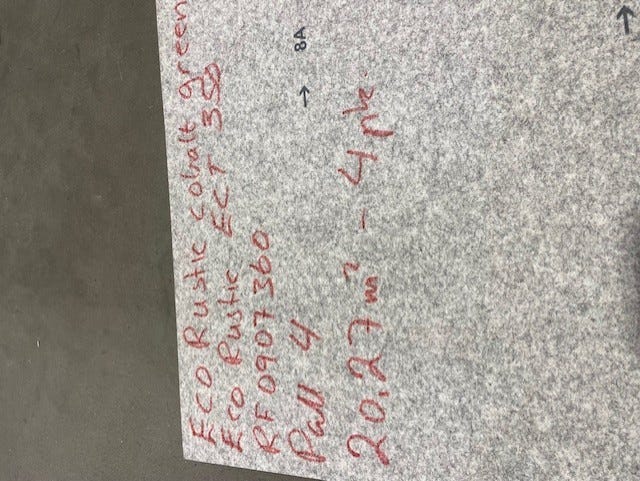 Eco Rustic cobalt green
Eco Rustic ECT 350
RF0907360
Pall 4
20.27 m² - 4 pk.
→ 8A
→